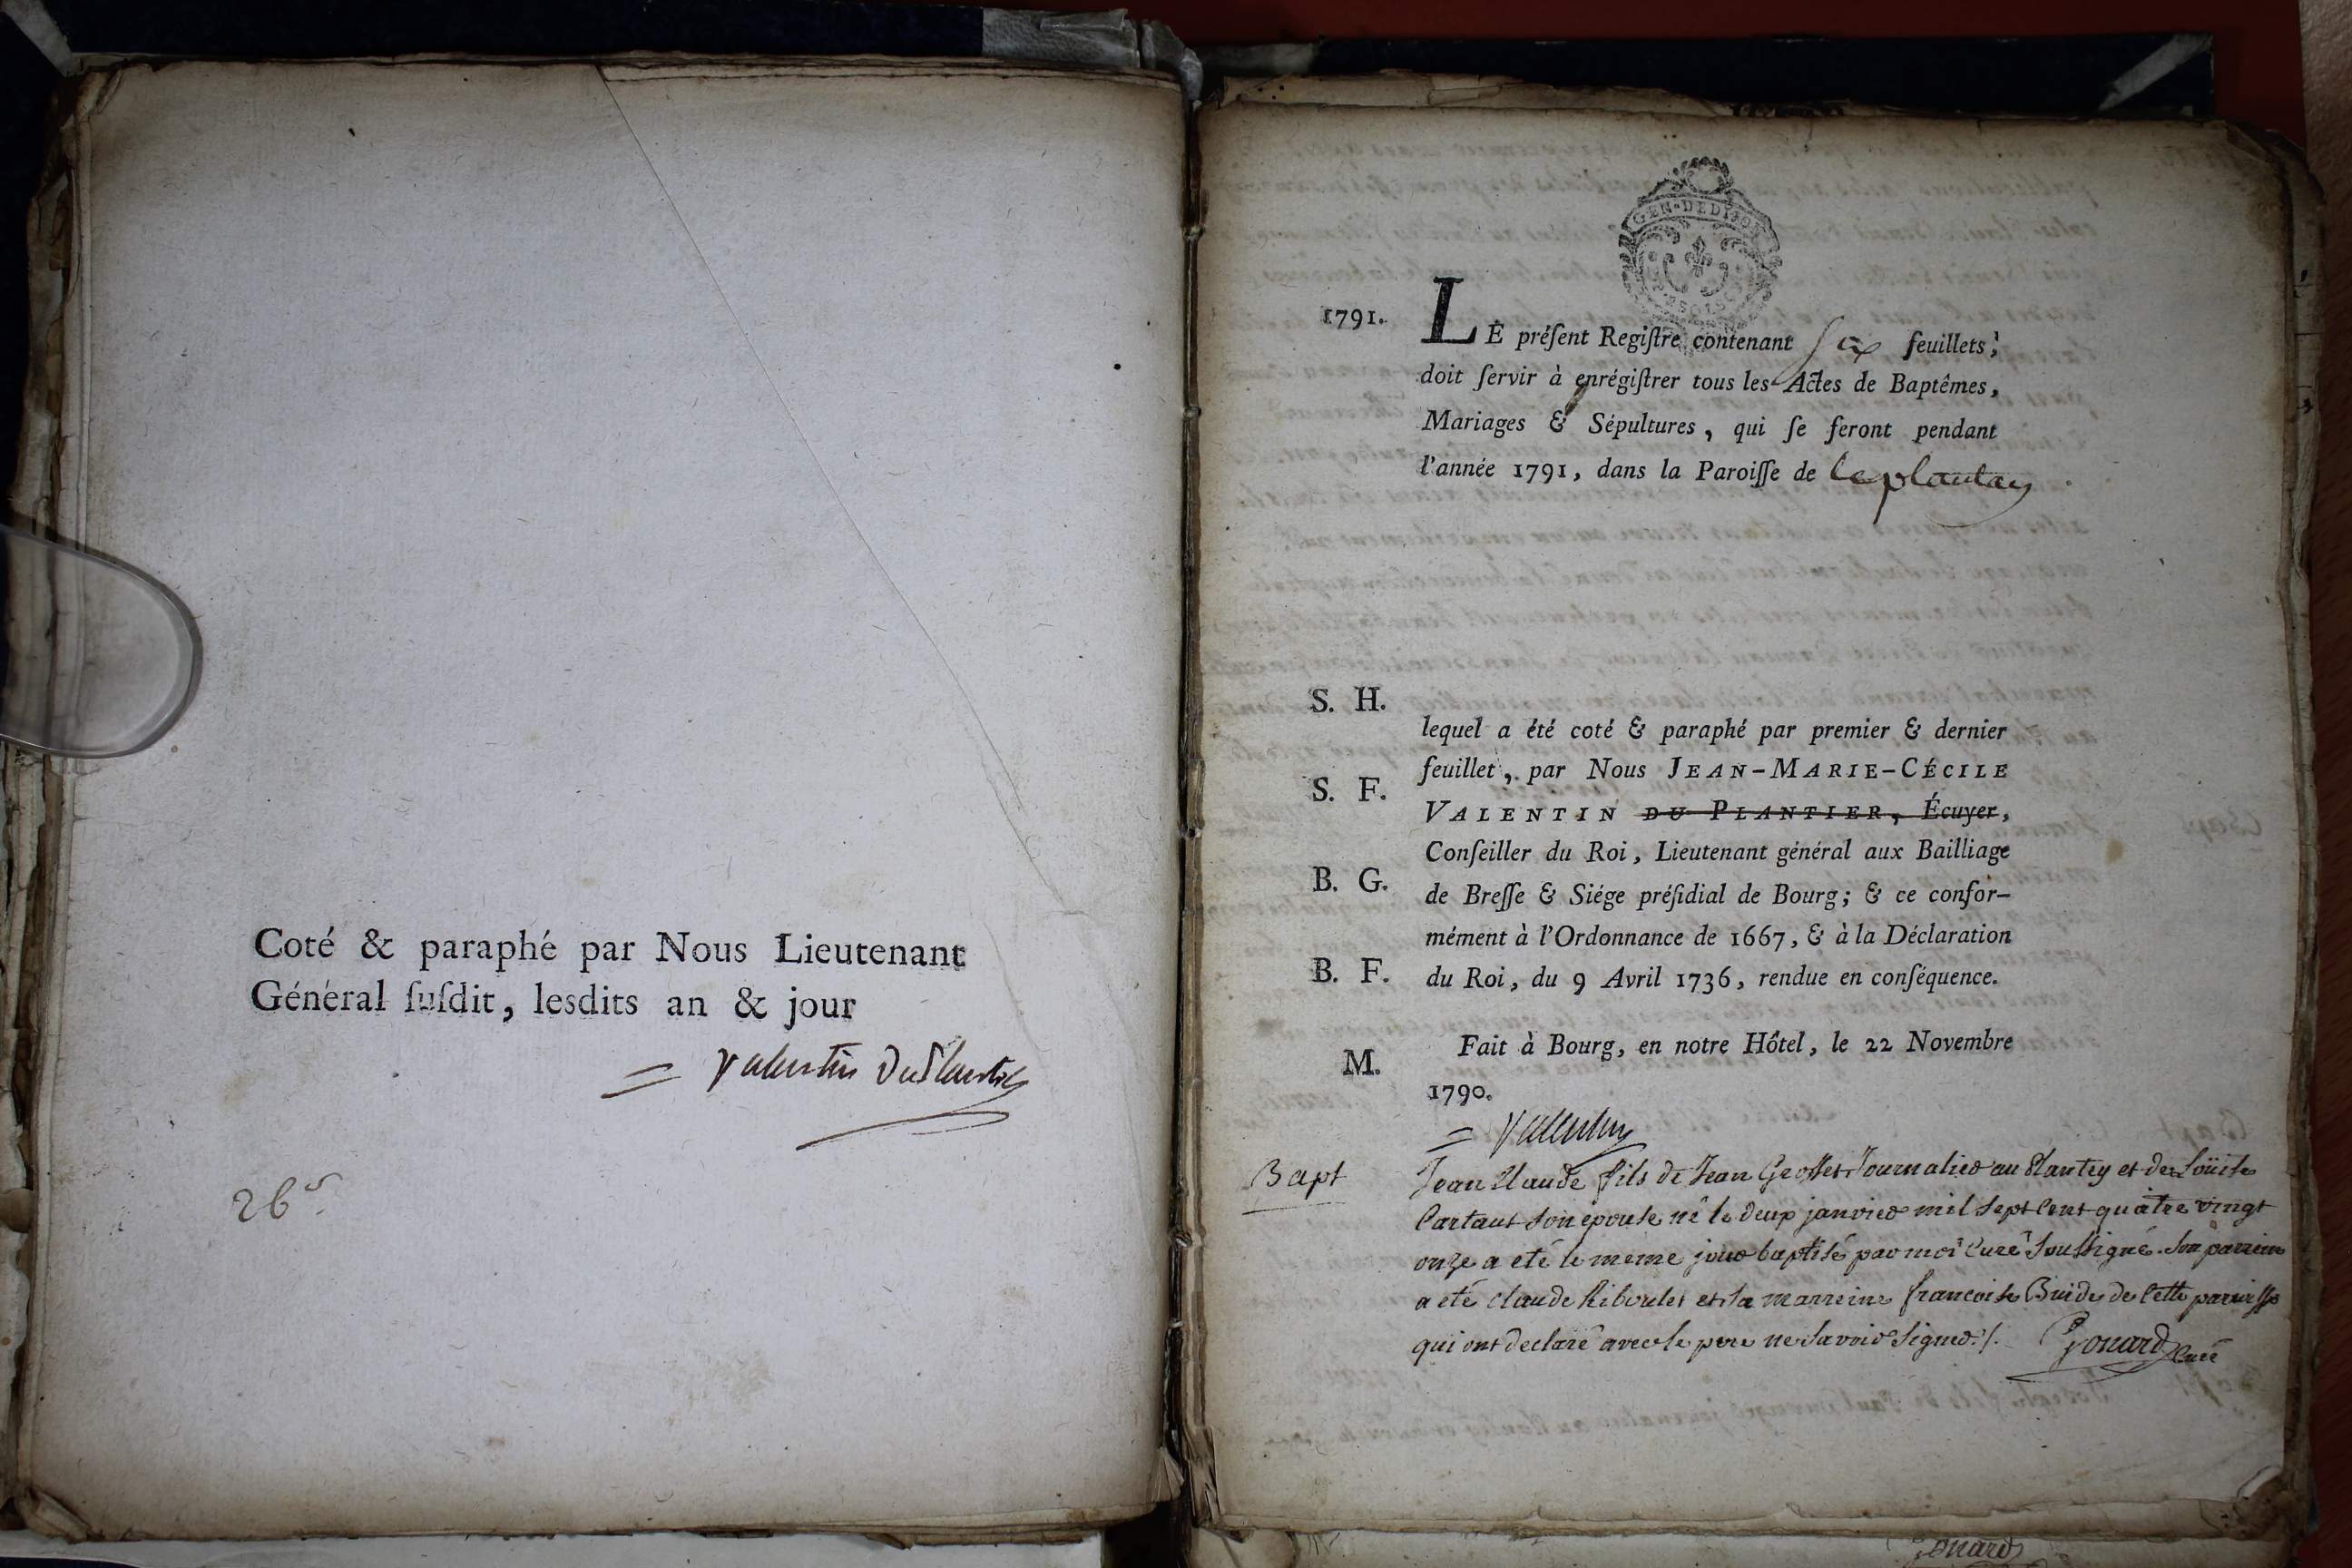 Coté & paraphé par Nous Lieutenant
Général ſuſdit, lesdits an & jour
= Valentin DuPlantier
26
GEN·DE DIJON
1791.
LE préſent Regiſtre contenant Six feuillets,
doit ſervir à enrégiſtrer tous les Actes de Baptêmes,
Mariages & Sépultures, qui ſe feront pendant
l'année 1791, dans la Paroiſſe de le plantay
S. H.
S. F.
B. G.
B. F.
M.
lequel a été coté & paraphé par premier & dernier
feuillet, par Nous JEAN-MARIE-CÉCILE
VALENTIN DU PLANTIER, Écuyer,
Conſeiller du Roi, Lieutenant général aux Bailliage
de Breſſe & Siége préſidial de Bourg; & ce confor-
mément à l'Ordonnance de 1667, & à la Déclaration
du Roi, du 9 Avril 1736, rendue en conſéquence.
Fait à Bourg, en notre Hôtel, le 22 Novembre
1790.
= Valentin
Bapt
Jean Claude fils de Jean Grosset Journalier au Plantey et de Loüise
Cartaut son epouse né le deux janvier mil sept cent quatre vingt
onze a eté le meme jour baptisé par moi Curé soussigné. Son parrein
a eté claude Riboulet et la marreine francoise Buide de cette paroisse
qui ont declaré avec le pere ne savoir signer ./. Gonard Curé
Gonard